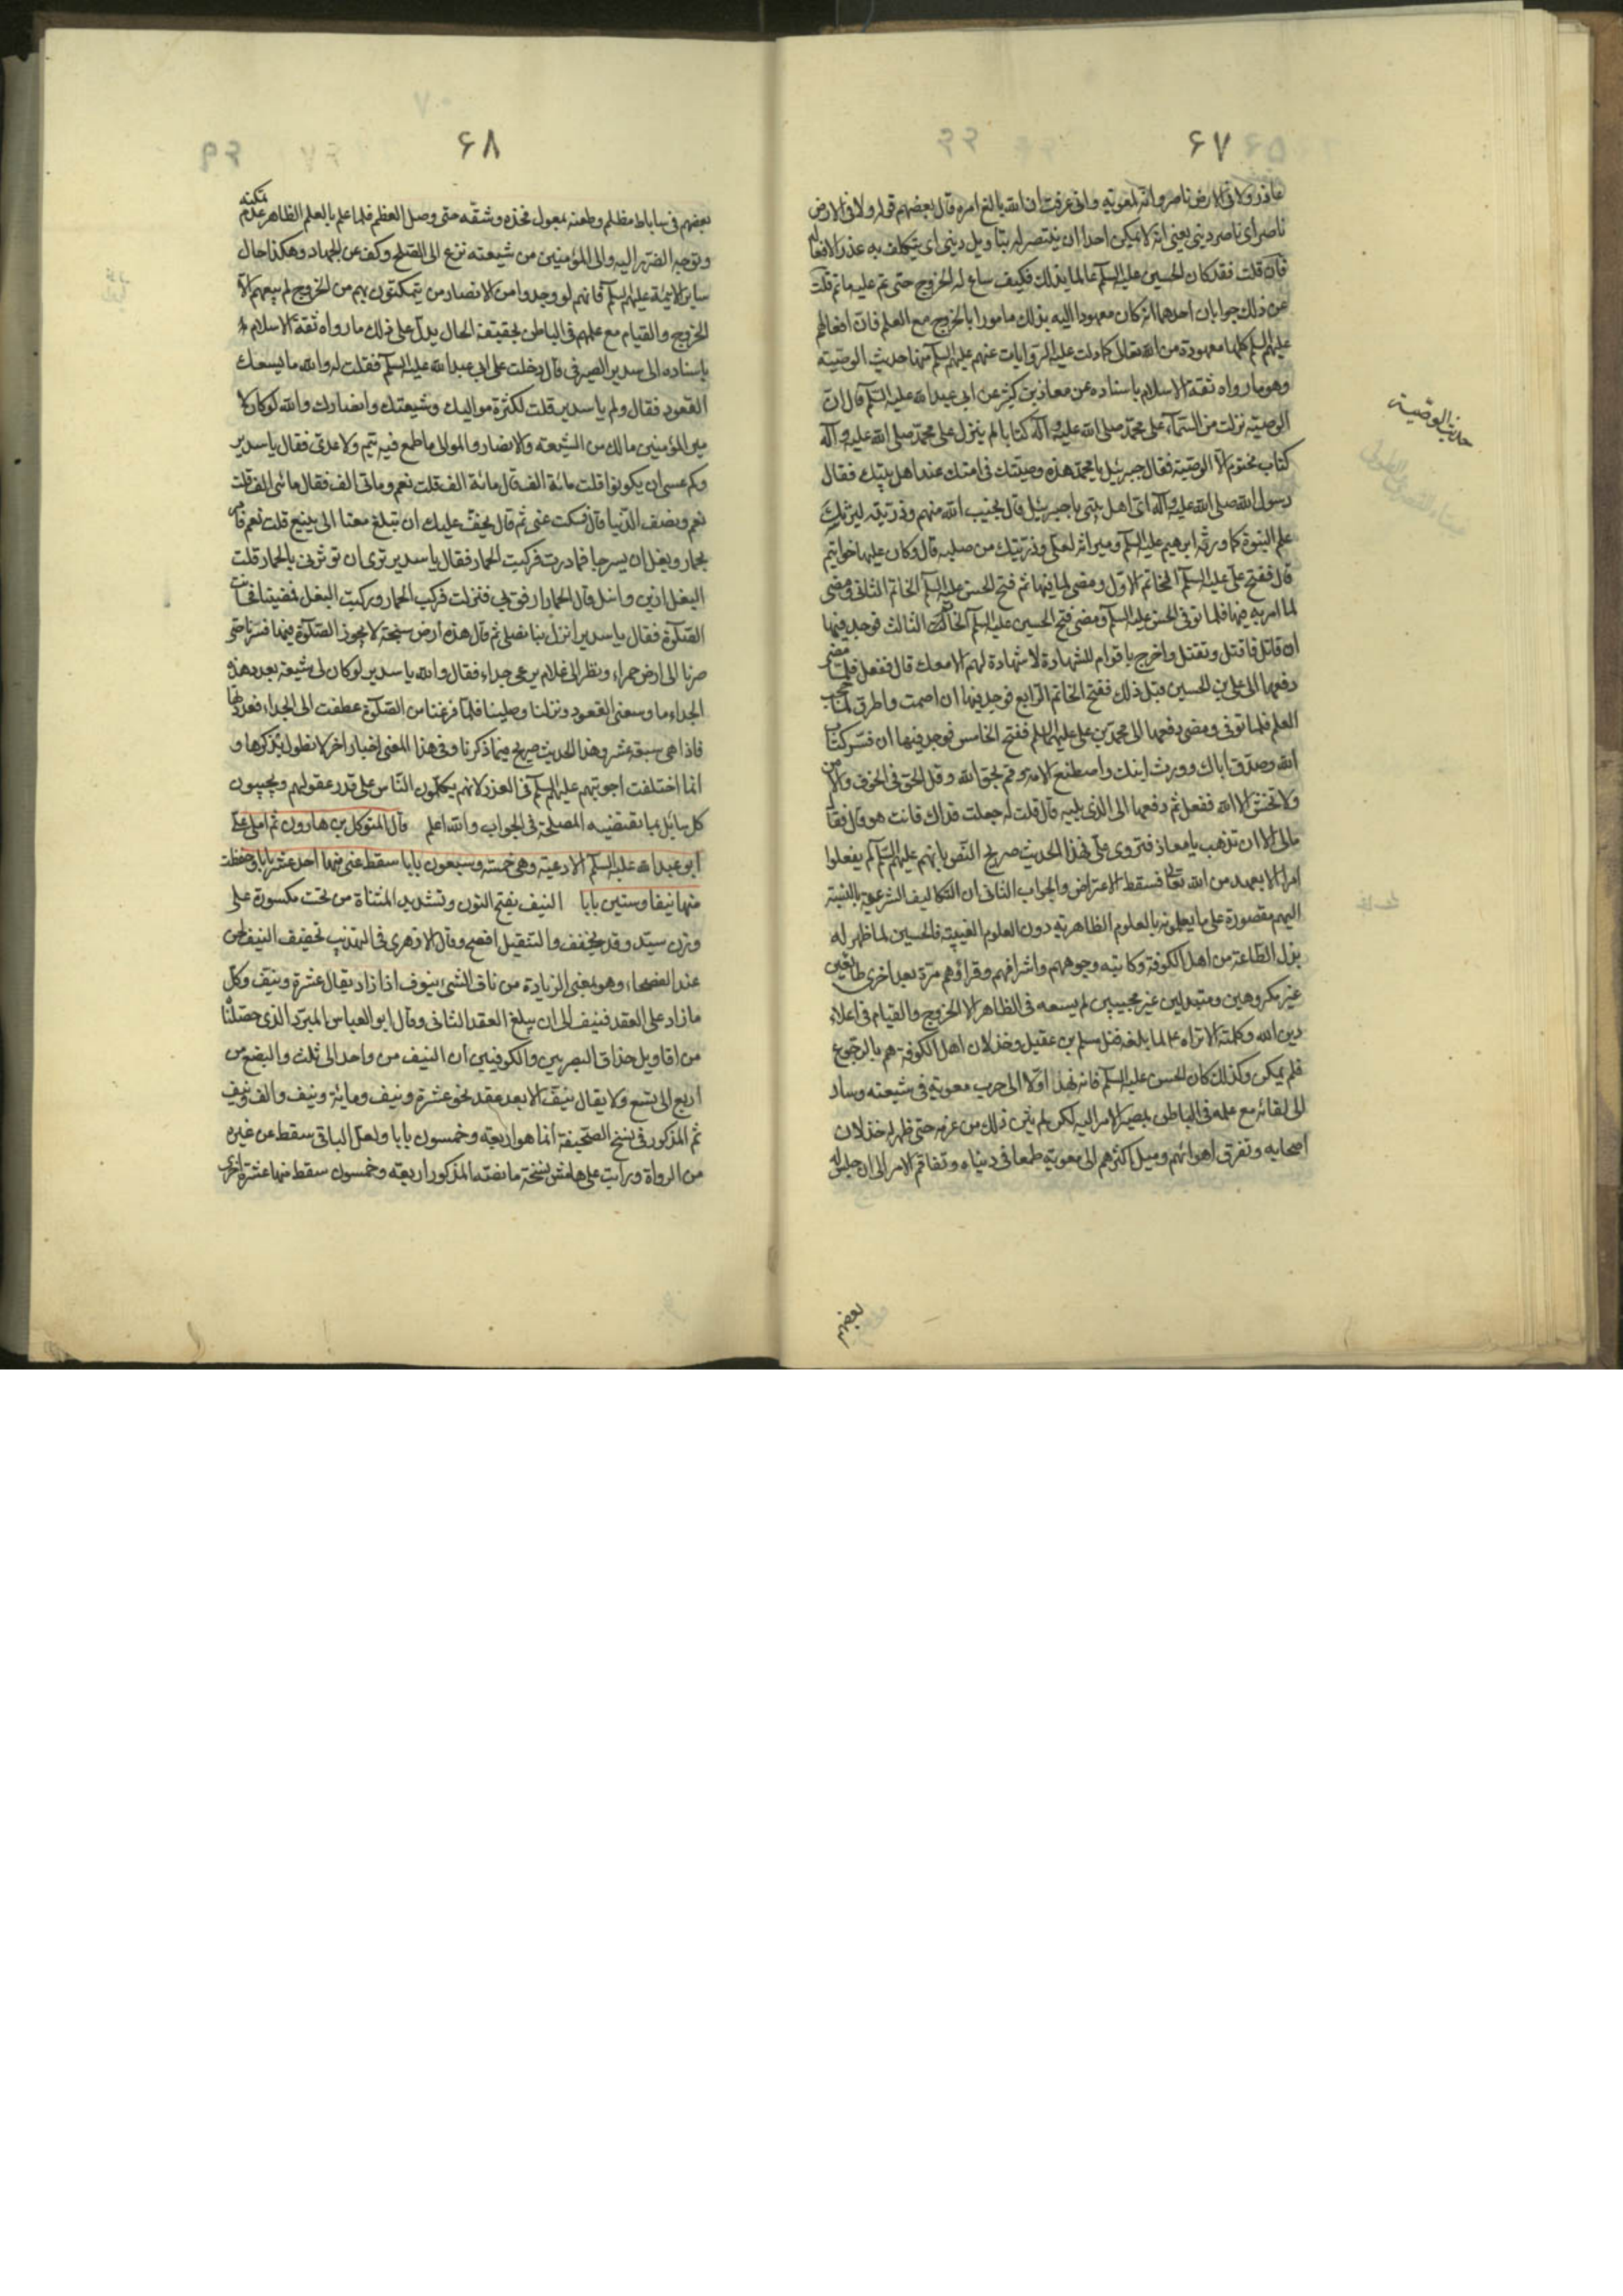 ۶۷
عاذر ولا فى الارض ناصر وانه لمعوية وانى عرفت ان الله بالغ امره قال بعضهم قوله ولا فى الارض
ناصر أى ناصر دينى يعنى انه لا يمكن احدا ان ينتصر له بتاويل دينى اى يتكلف به عذرا لافعاله
فان قلت فقد كان الحسين عليه السلم عالما بذلك فكيف ساغ له الخروج حتى تم عليه ما تم قلت
عن ذلك جوابان احدهما انه كان معهودا اليه بذلك مامورا بالخروج مع العلم فان افعالهم
عليهم السلم كلها معهودة من الله تعالى كما دلت عليه الروايات عنهم عليهم السلم منها حديث الوصية
حديث الوصية
وهو ما رواه ثقة الاسلام باسناده عن معاذ بن كثير عن ابى عبد الله عليه السلم قال ان
الوصية نزلت من السماء على محمد صلى الله عليه وآله كتابا لم ينزل على محمد صلى الله عليه وآله
كتاب مختوم الا الوصية فقال جبرئيل يا محمد هذه وصيتك فى امتك عند اهل بيتك فقال
رسول الله صلى الله عليه وآله اى اهل بيتى يا جبرئيل قال نجيب الله منهم وذريته ليرثك
علم النبوة كما ورثه ابرهيم عليه السلم وميراثه لعلى وذريتك من صلبه قال وكان عليها خواتيم
قال ففتح على عليه السلم الخاتم الاول ومضى لما فيها ثم فتح الحسن عليه السلم الخاتم الثانى ومضى
لما امر به فيها فلما توفى الحسن عليه السلم ومضى فتح الحسين عليه السلم الخاتم الثالث فوجد فيها
ان قاتل فاقتل وتقتل واخرج باقوام للشهادة لا شهادة لهم الا معك قال ففعل فلما مضى
دفعها الى على بن الحسين قبل ذلك ففتح الخاتم الرابع فوجد فيها ان اصمت واطرق لما حجب
العلم فلما توفى ومضى دفعها الى محمد بن على عليهما السلم ففتح الخامس فوجد فيها ان فسر كتاب
الله وصدق اباك وورث ابنك واصطنع الامة وقم بحق الله وقل الحق فى الخوف والامن
ولا تخش الا الله ففعل ثم دفعها الى الذى يليه قال قلت له جعلت فداك فانت هو قال فقال
مالى الا ان تذهب يا معاذ فتروى على فهذا الحديث صريح النص بانهم عليهم السلم لم يفعلوا
امرا الا بعهد من الله تعالى فسقط الاعتراض والجواب الثانى ان التكاليف الشرعية بالنسبة
اليهم مقصورة على ما يعلمونه بالعلوم الظاهرية دون العلوم الغيبية فالحسين لما ظهر له
بذل الطاعة من اهل الكوفة وكاتبه وجوههم واشرافهم وقراؤهم مرة بعد اخرى طائعين
غير مكروهين ومبتدئين غير مجيبين لم يسعه فى الظاهر الا الخروج والقيام فى اعلاء
دين الله وكلمته الا تراه لما بلغه قتل مسلم بن عقيل وخذلان اهل الكوفة هم بالرجوع
فلم يمكن وكذلك كان الحسن عليه السلم فانه نهد اولا الى حرب معوية فى شيعته وساد
الى لقائه مع علمه فى الباطن بمصير الامر اليه لكن لم يثن ذلك من عزمه حتى ظهر له خذلان
اصحابه وتفرق اهوائهم وميل اكثرهم الى معوية طمعا فى دنياه وتفاقم الامر الى ان جلس له
بعضهم
۶۸
بعضهم فى ساباط مظلم وطعنه بمعول فخذه وشقه حتى وصل العظم فلما علم بالعلم الظاهر عدم تمكنه
وتوجه الضرر اليه والى المؤمنين من شيعته نزع الى الصلح وكف عن الجهاد وهكذا حال
ساير الائمة عليهم السلم فانهم لو وجدوا من الانصار من يتمكنون بهم من الخروج لم يسعهم الا
الخروج والقيام مع علمهم فى الباطن بحقيقة الحال يدل على ذلك ما رواه ثقة الاسلام
باسناده الى سدير الصيرفى قال دخلت على ابى عبد الله عليه السلم فقلت له والله ما يسعك
القعود فقال ولم يا سدير قلت لكثرة مواليك وشيعتك وانصارك والله لو كان لا
مير المؤمنين مالك من الشيعة والانصار والموالى ما طمع فيه تيم ولا عدى فقال يا سدير
وكم عسى ان يكونوا قلت مائة الف قال مائة الف قلت نعم ومائتى الف فقال مائتى الف قلت
نعم ونصف الدنيا قال فسكت عنى ثم قال يخف عليك ان تبلغ معنا الى ينبع قلت نعم فامر
بحمار وبغل ان يسرجا فبادرت فركبت الحمار فقال يا سدير ترى ان تؤثرنى بالحمار قلت
البغل ازين وانبل قال الحمار ارفق بى فنزلت فركب الحمار وركبت البغل فمضينا فحانت
الصلوة فقال يا سدير انزل بنا نصلى ثم قال هذه ارض سبخة لا يجوز الصلوة فيها فسرنا حتى
صرنا الى ارض حمراء ونظر الى غلام يرعى جداء فقال والله يا سدير لو كان لى شيعة بعدد هذه
الجداء ما وسعنى القعود ونزلنا وصلينا فلما فرغنا من الصلوة عطفت الى الجداء فعددتها
فاذا هى سبعة عشر وهذا الحديث صريح فيما ذكرنا وفى هذا المعنى اخبار اخر لا نطول بذكرها و
انما اختلفت اجوبتهم عليهم السلم فى العذر لانهم يكلمون الناس على قدر عقولهم ويجيبون
كل سائل بما تقتضيه المصلحة فى الجواب والله اعلم قال المتوكل بن هارون ثم املى على
ابو عبد الله عليه السلم الادعية وهى خمسة وسبعون بابا سقط عنى منها احد عشر بابا وحفظت
منها نيفا وستين بابا النيف بفتح النون وتشديد المثناة من تحت مكسورة على
وزن سيد وقد يخفف والتثقيل افصح وقال الازهرى فى التهذيب تخفيف النيف لحن
عند الفصحاء وهو بمعنى الزيادة من ناف الشىء ينوف اذا زاد يقال عشرة ونيف وكل
ما زاد على العقد فنيف الى ان يبلغ العقد الثانى وقال ابو العباس المبرد الذى حصلناه
من اقاويل حذاق البصريين والكوفيين ان النيف من واحد الى ثلث والبضع من
اربع الى تسع ولا يقال نيف الا بعد عقد نحو عشرة ونيف ومائة ونيف والف ونيف
ثم المذكور فى نسخ الصحيفة انما هو اربعة وخمسون بابا ولعل الباقى سقط عن غيره
من الرواة ورايت على هامش نسخة ما نصه المذكور اربعة وخمسون سقط منها عشرة اخرى